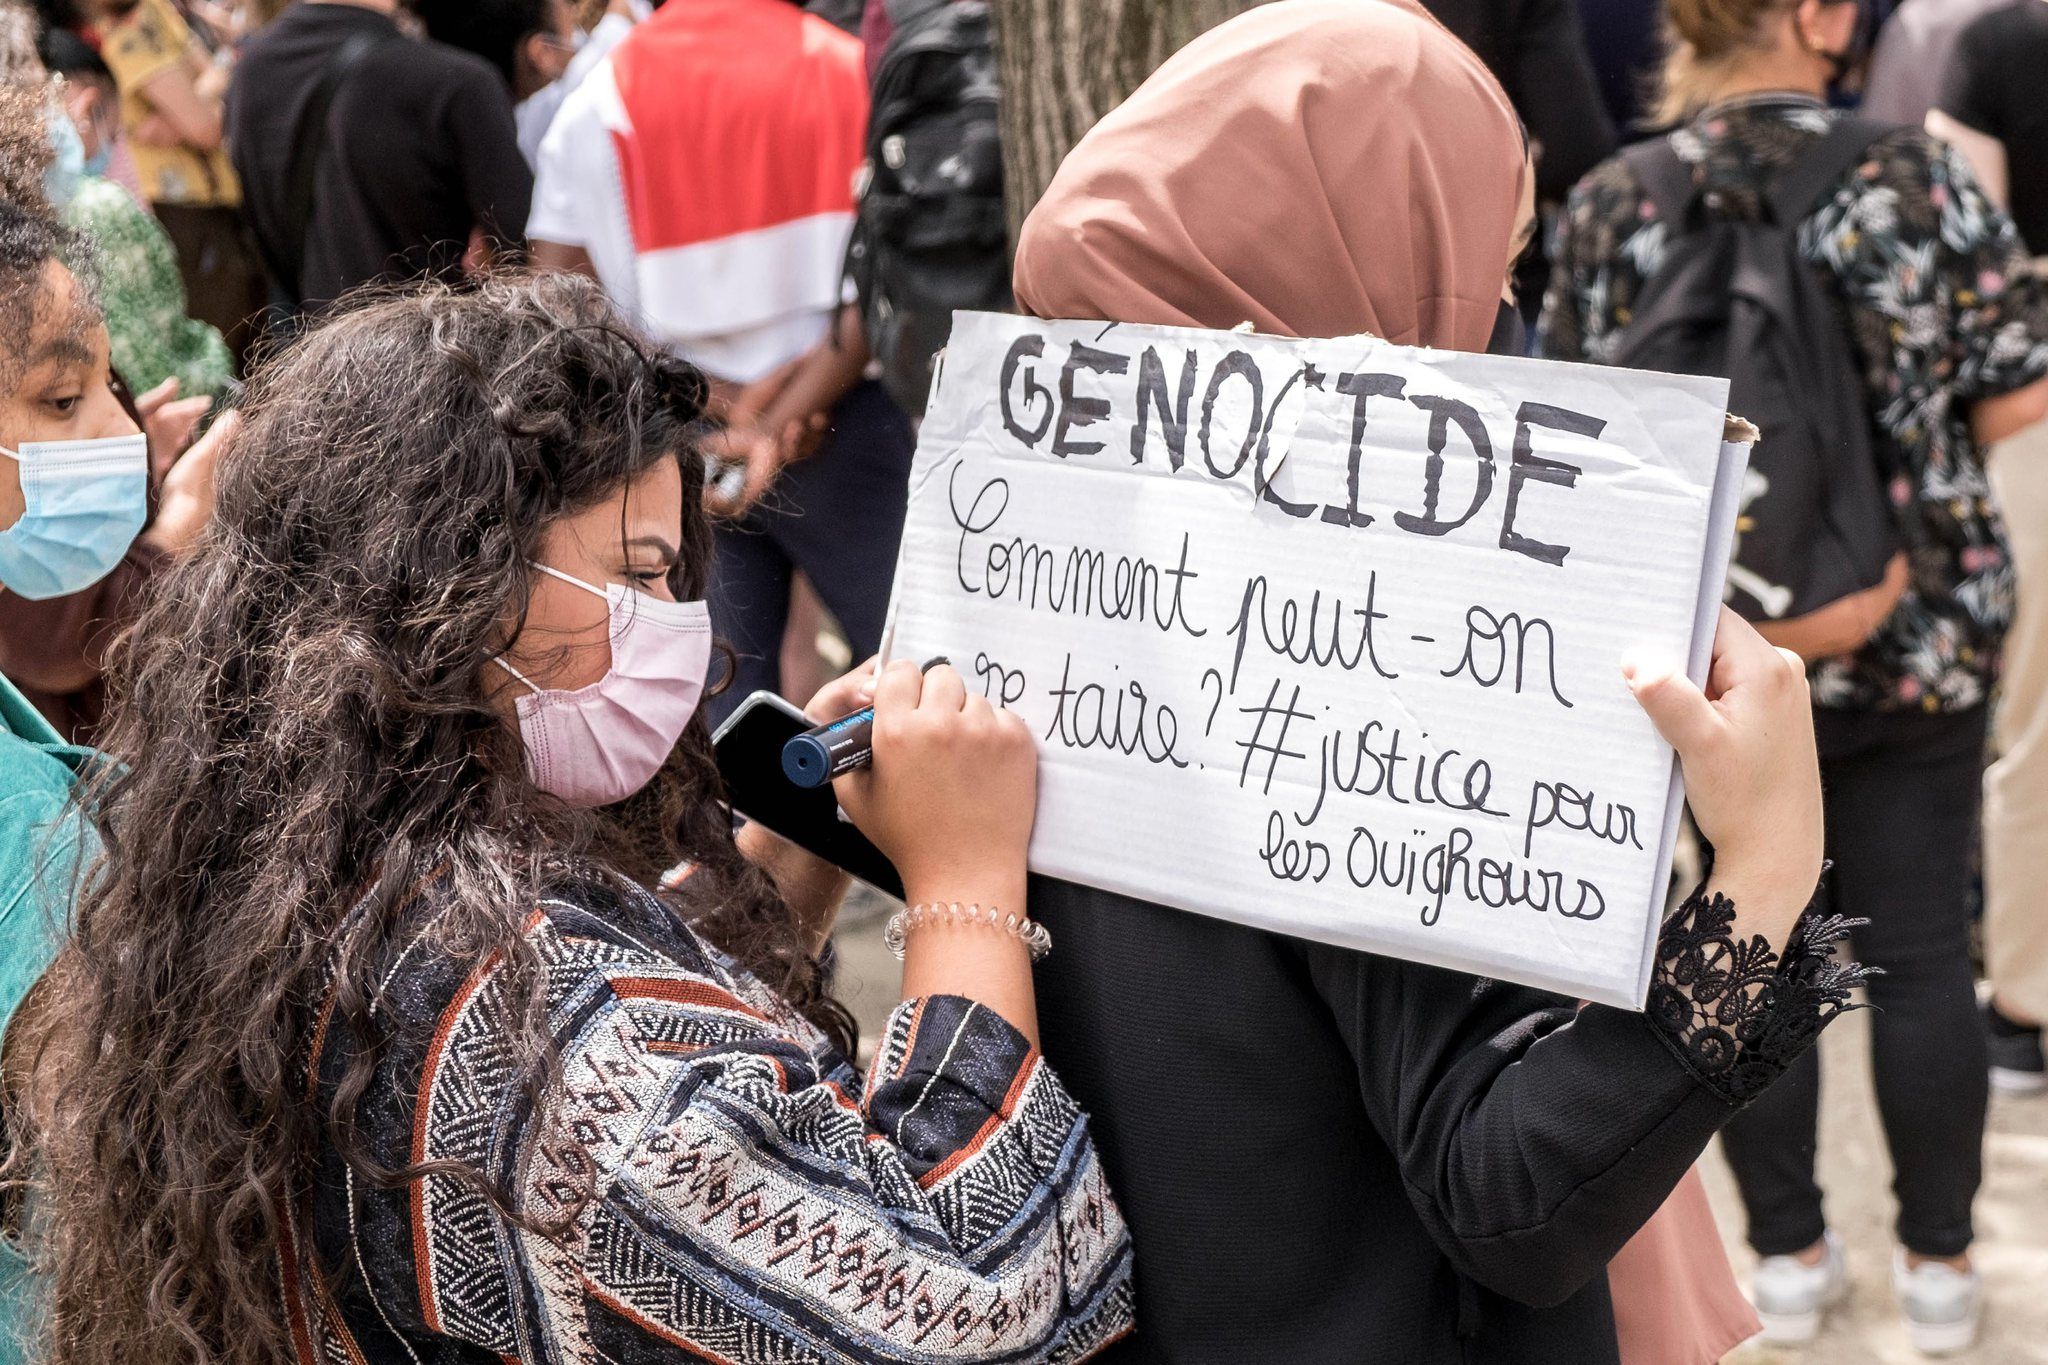 GÉNOCIDE
Comment peut-on
se taire? #justice pour
les Ouïghours